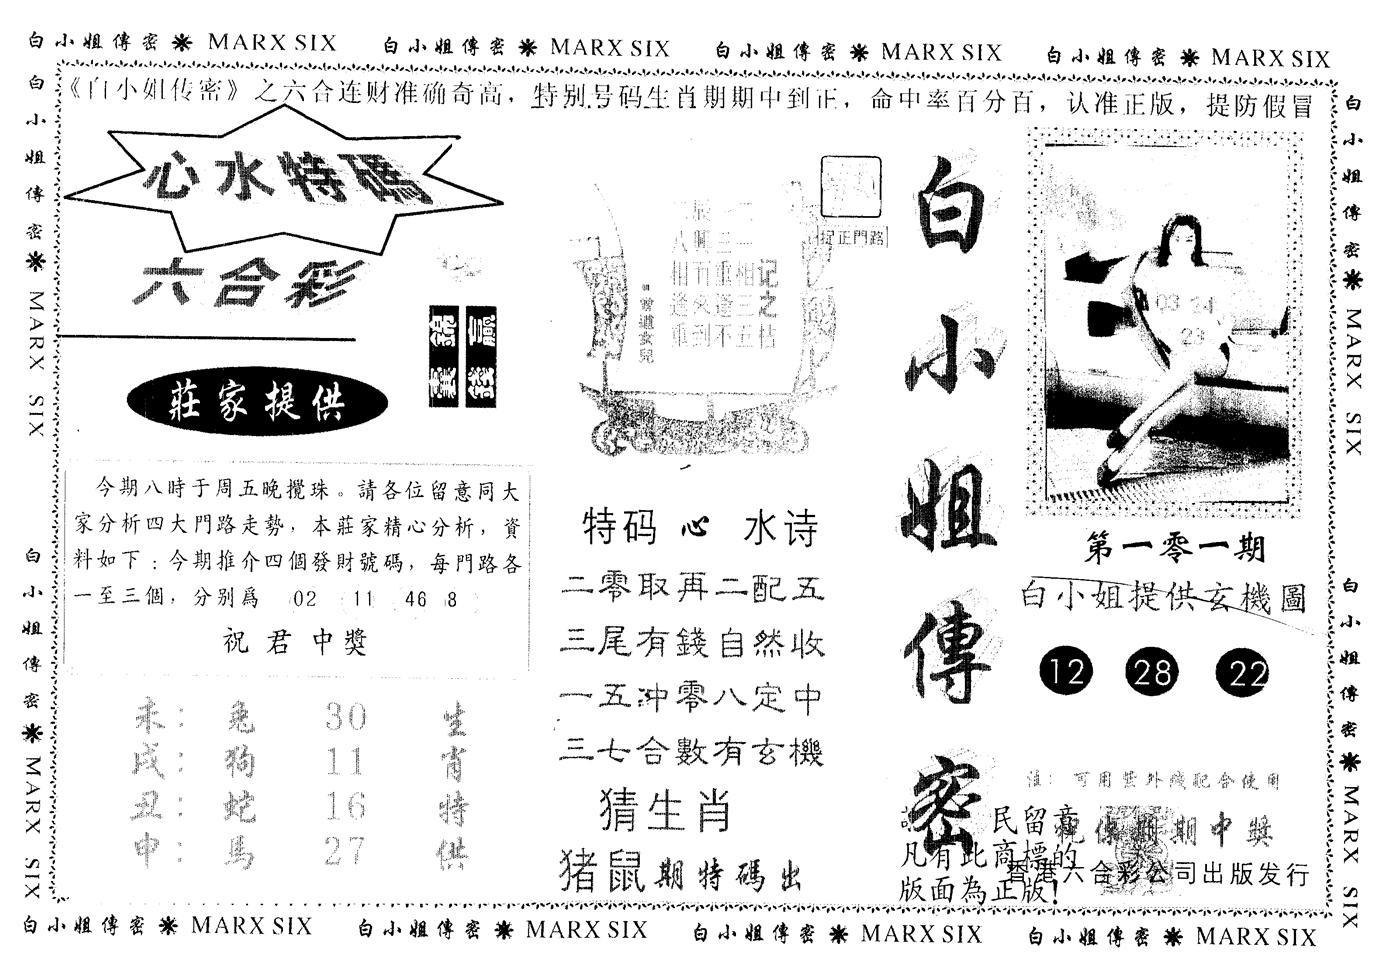 白小姐傳密 MARX SIX 白小姐傳密 MARX SIX 白小姐傳密 MARX SIX 白小姐傳密 MARX SIX
《白小姐传密》之六合连财准确奇高，特别号码生肖期期中到正，命中率百分百，认准正版，提防假冒
白小姐傳密 MARX SIX
白小姐傳密 MARX SIX
心水特碼
六合彩
莊家提供
今期八時于周五晚攪珠。請各位留意同大
家分析四大門路走勢，本莊家精心分析，資
料如下：今期推介四個發財號碼，每門路各
一至三個，分别爲 02 11 46 8
祝君中獎
未：兔 30 生
戌：狗 11 肖
丑：蛇 16 特
申：馬 27 供
捉正門路
记之
相重
三遂
五不
曾道女兒
特码心水诗
二零取再二配五
三尾有錢自然收
一五冲零八定中
三七合數有玄機
猜生肖
猪鼠期特碼出
白小姐傳密
民留意
凡有此商標的
版面為正版!
03 24
23
第一零一期
白小姐提供玄機圖
12 28 22
注：可用紫外线配合使用
祝你期期中獎
香港六合彩公司出版发行
白小姐傳密 MARX SIX
白小姐傳密 MARX SIX
白小姐傳密 MARX SIX 白小姐傳密 MARX SIX 白小姐傳密 MARX SIX 白小姐傳密 MARX SIX